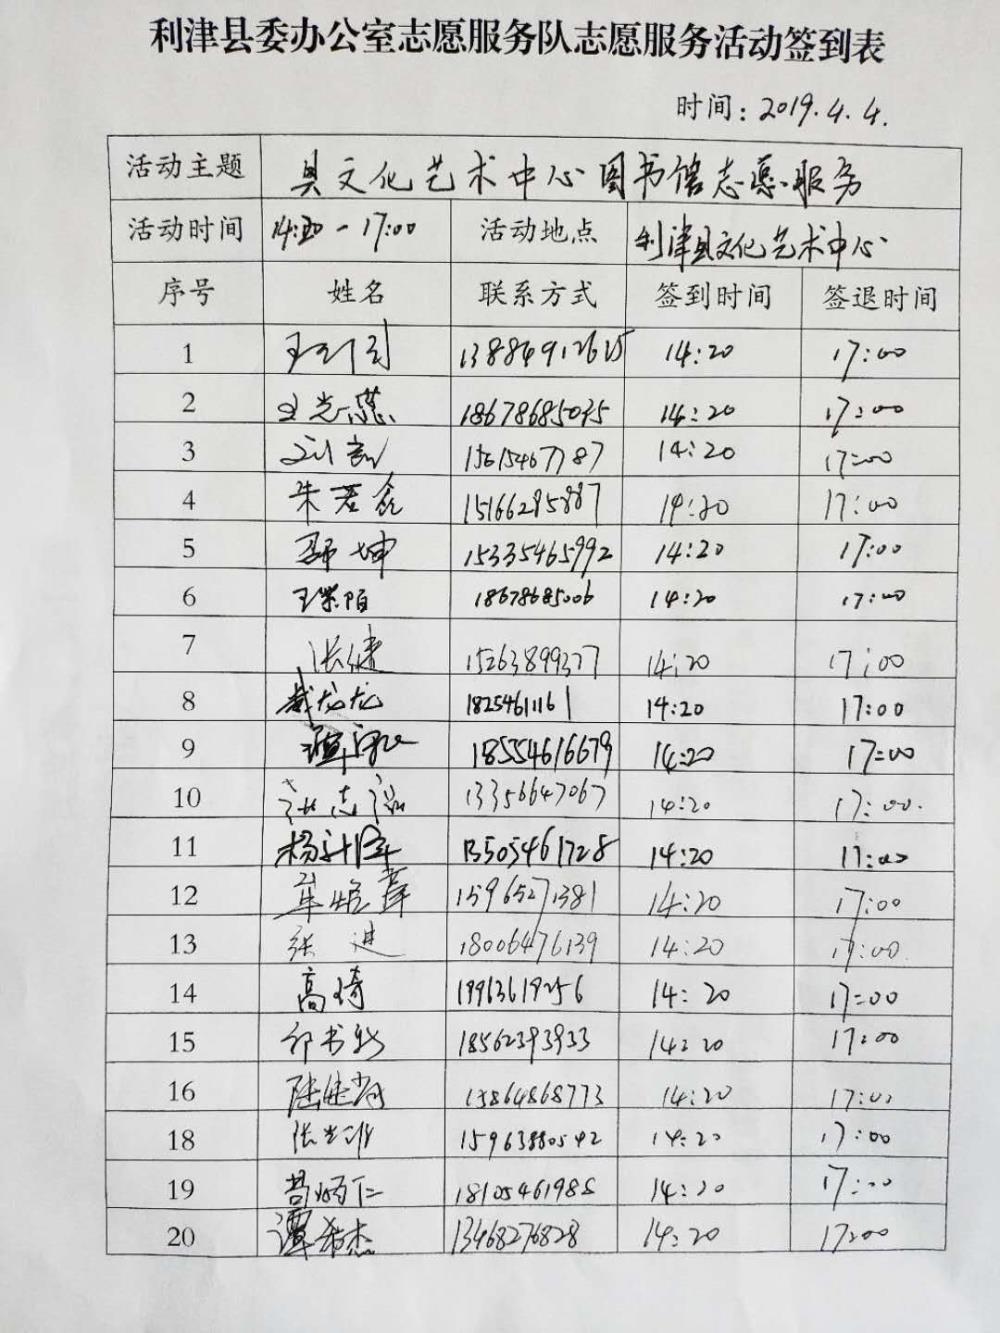 利津县委办公室志愿服务队志愿服务活动签到表
时间: 2019.4.4.
活动主题 县文化艺术中心图书馆志愿服务
活动时间 14:30-17:00 活动地点 利津县文化艺术中心
序号 姓名 联系方式 签到时间 签退时间
1 14:20 17:00
2 18678685035 14:20 17:00
3 15615467787 14:20 17:00
4 朱若磊 15166285887 14:20 17:00
5 坤 15335465992 14:20 17:00
6 18678685006 14:20 17:00
7 张健 15263899377 14:20 17:00
8 龙龙 1825461161 14:20 17:00
9 18554616679 14:20 17:00
10 张志 13356647067 14:20 17:00.
11 杨 13505461728 14:20 17:00
12 15965271381 14:20 17:00
13 张进 18006476139 14:20 17:00.
14 高琦 19963619256 14:20 17:00
15 18562393933 14:20 17:00
16 陆 15864868773 14:20 17:00
18 张 15963880542 14:20 17:00
19 仁 18105461985 14:20 17:00
20 谭希杰 13468276828 14:20 17:00